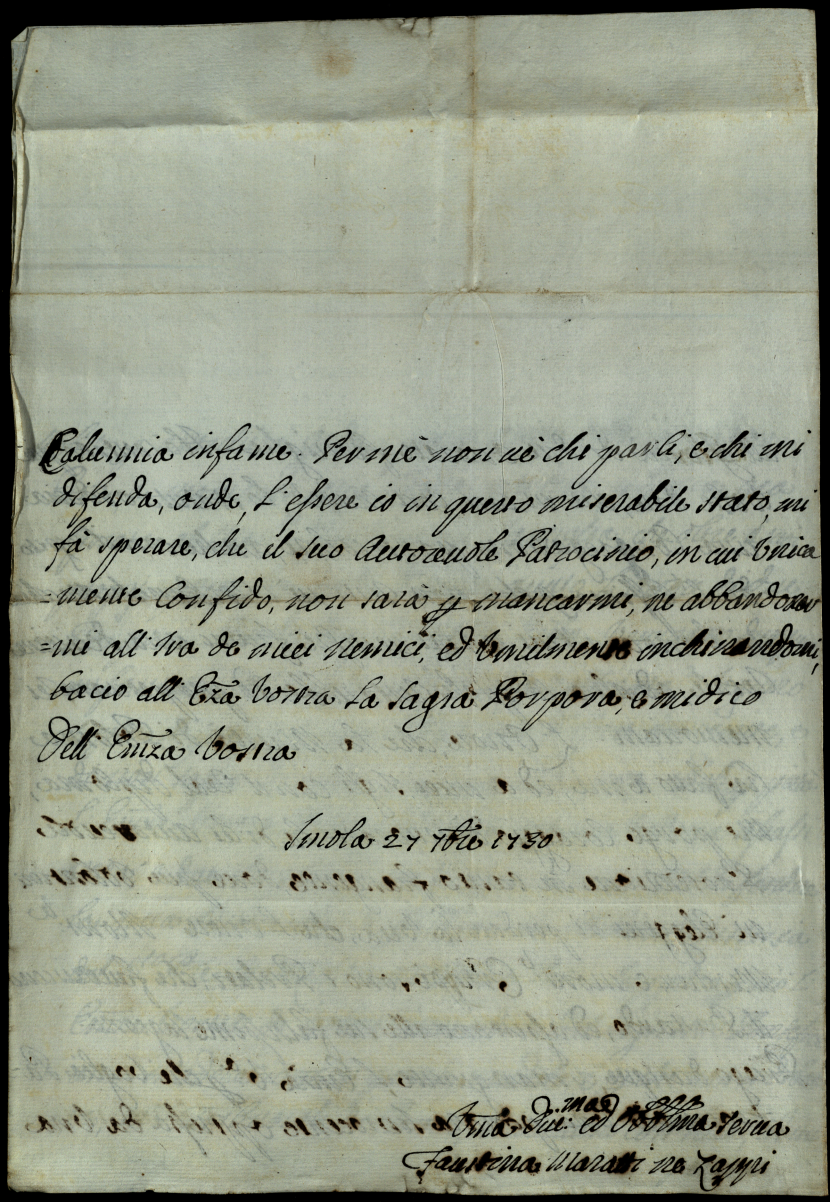 Calunnia infame. Per mè non uè chi parli, e chi mi
difenda, onde, L'essere io in questo miserabile stato, mi
fà sperare, che il suo Autoreuole Patrocinio, in cui Vnica
=mente Confido, non sarà p mancarmi, ne abbandonar
=mi all'Ira de miei Nemici, ed Vmilmente inchinandomi,
bacio all'Eza Vostra La Sagra Porpora, e mi dico
Dell'Emza Vostra
Imola 27 7bre 1730
Vma Diu:ma ed Obbma serua
Faustina Maratti ne Zappi